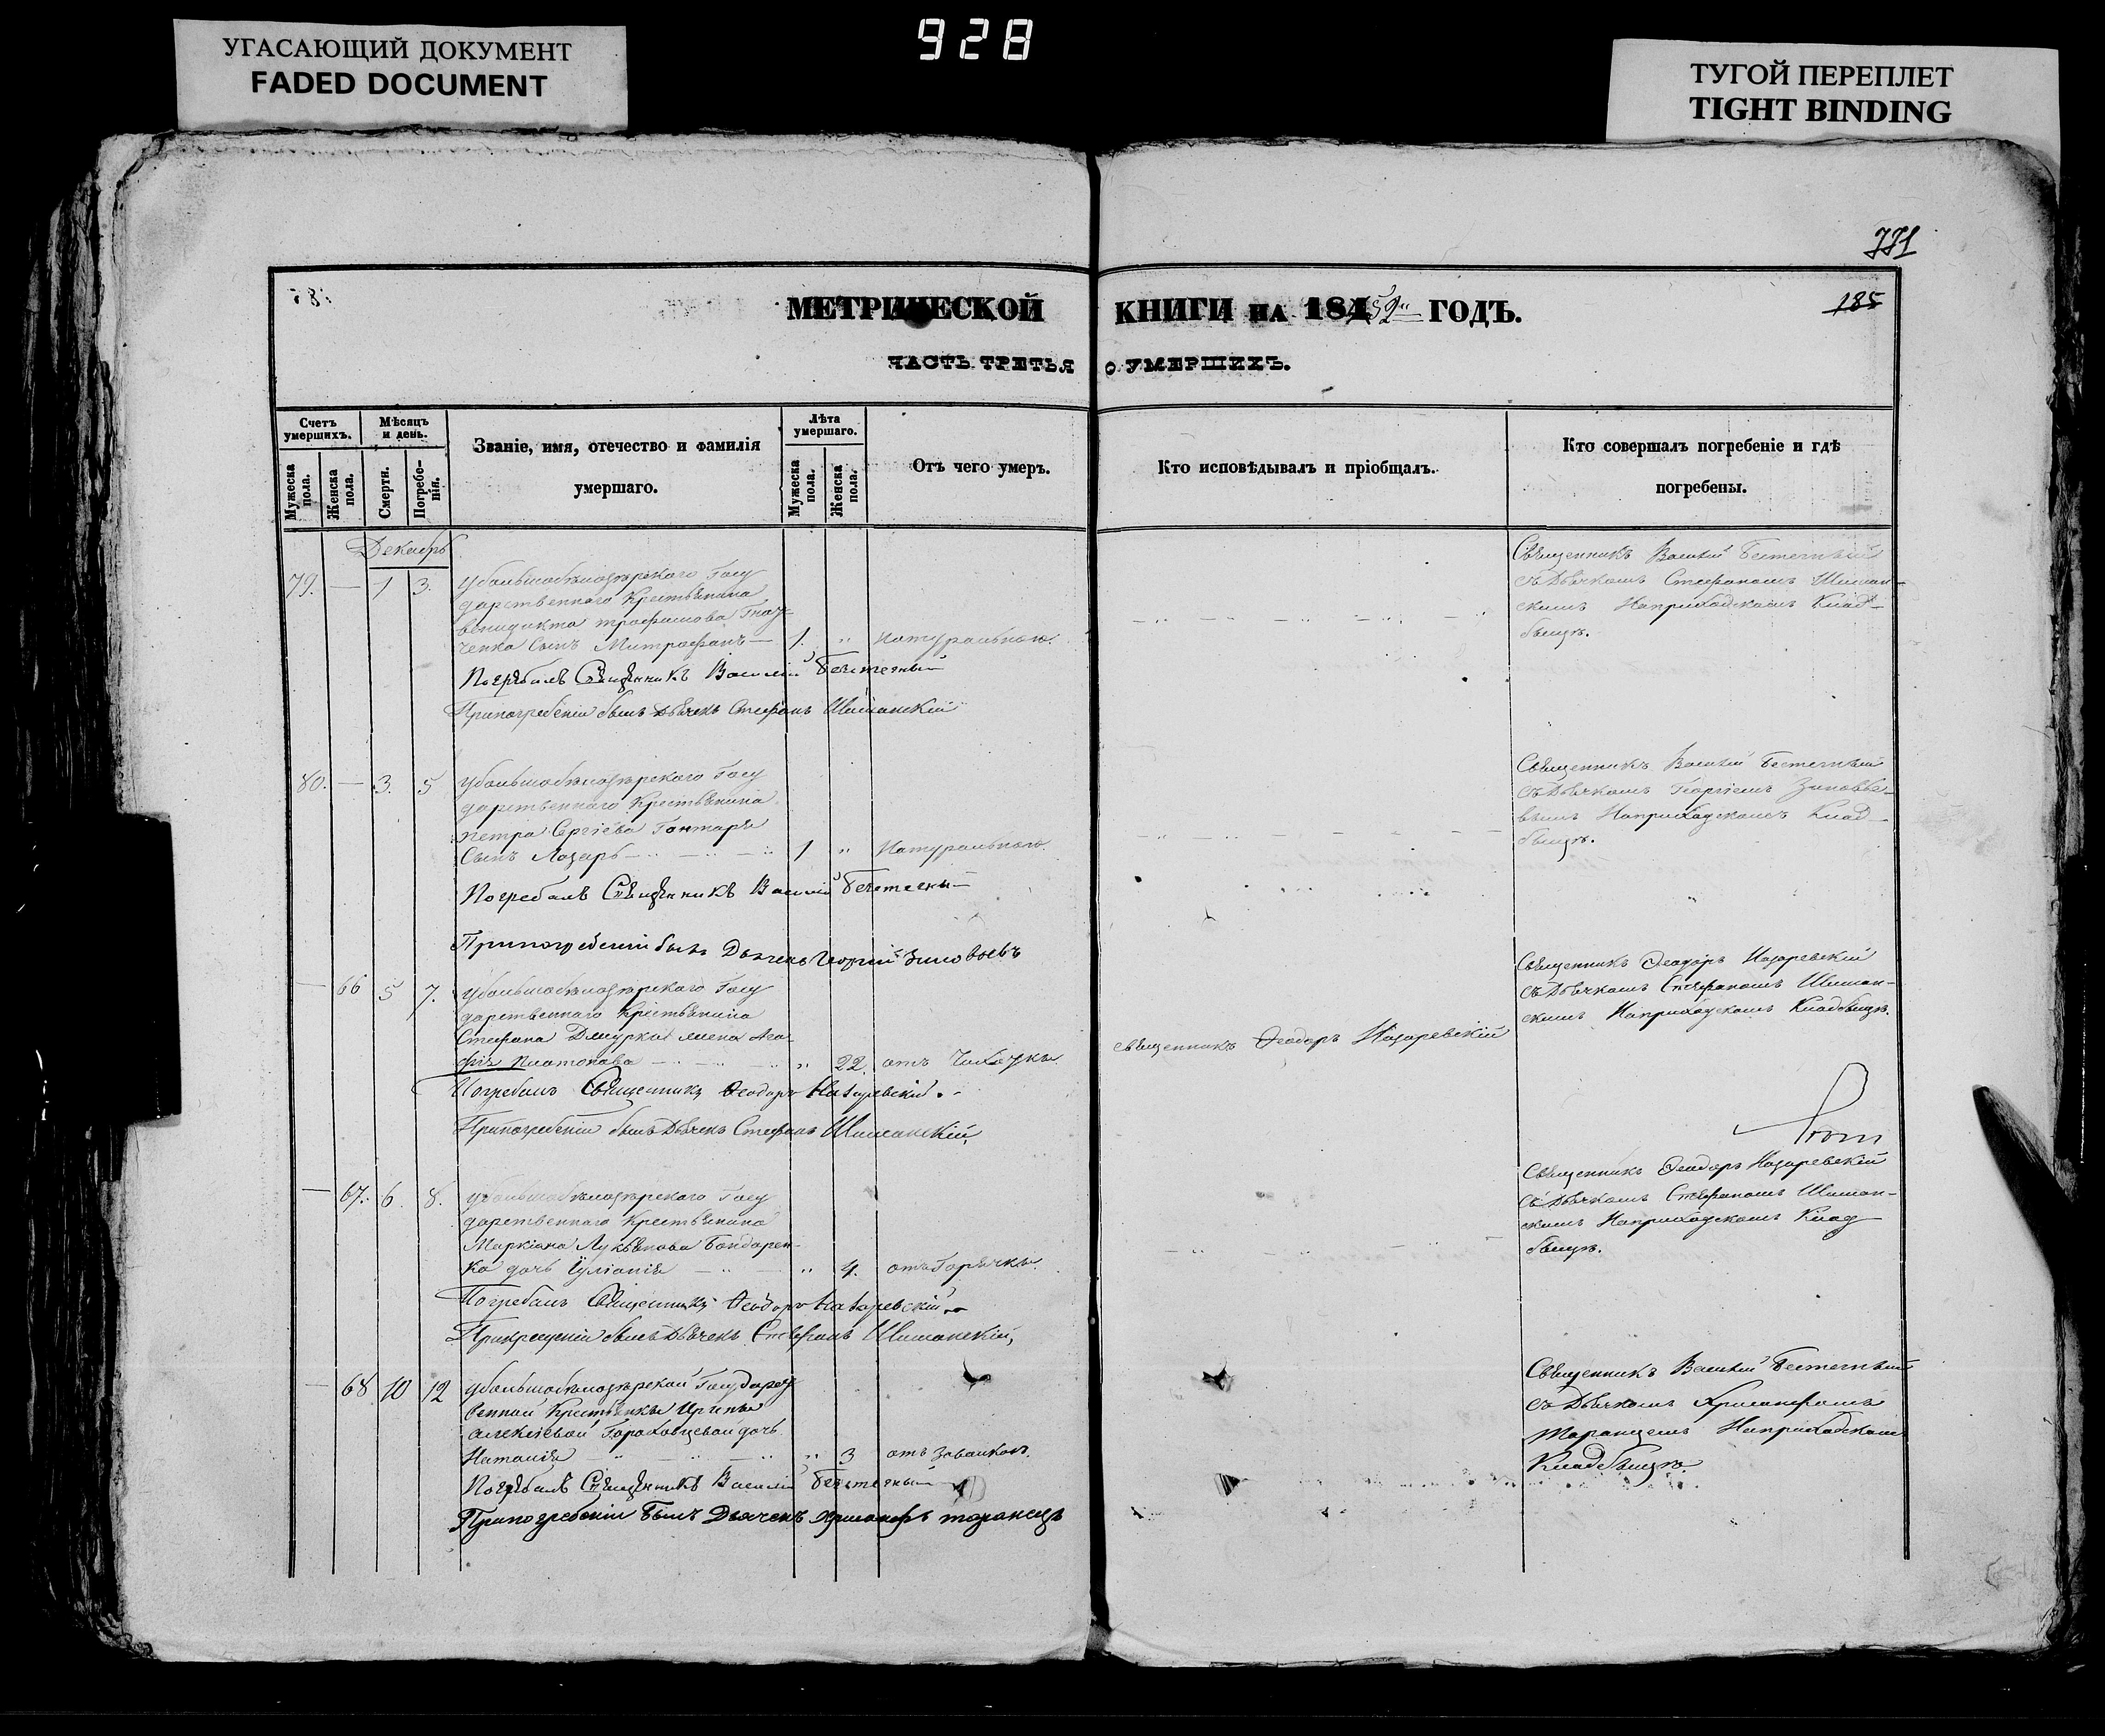 УГАСАЮЩИЙ ДОКУМЕНТ
FADED DOCUMENT
928
ТУГОЙ ПЕРЕПЛЕТ
TIGHT BINDING
771
МЕТРИЧЕСКОЙ КНИГИ НА 1852 ГОДЪ.
185
ЧАСТЬ ТРЕТЬЯ О УМЕРШИХЪ.
Счетъ умершихъ.
Мужеска пола.
Женска пола.
Мѣсяцъ и день.
Смерти.
Погребенія.
Званіе, имя, отечество и фамилія
умершаго.
Лѣта умершаго.
Мужеска пола.
Женска пола.
Отъ чего умеръ.
Кто исповѣдывалъ и пріобщалъ.
Кто совершалъ погребеніе и гдѣ
погребены.
Декабрь
79. — 1 3.
Убольшебѣлозѣрского Госу
дарственнаго Крестьянина
венидикта трофимова
ченка Сынъ Митрофанъ — 1. " натуральною.
Священникъ Василій
съ Дьячкомъ Стефаномъ Шиман-
скимъ Наприходскомъ Клад-
бищѣ.
Погребалъ Священникъ Василій
Припогребеніи былъ Дьячекъ Стефанъ Шиманскій
80. — 3. 5
Убольшебѣлозѣрского Госу
дарственнаго Крестьянина
петра Сергіева Гонтаря
Сынъ Лазарь 1 " Натуральною.
Священникъ Василій
съ Дьячкомъ Георгіемъ Зиновье-
вымъ Наприходскомъ Клад-
бищѣ.
Погребалъ Священникъ Василій
Припогребеніи былъ Дьячекъ Георгій Зиновьевъ
— 66 5 7.
Убольшебѣлозѣрского Госу
дарственнаго Крестьянина
Стефана жена Ага-
фія Платонова " 22. отъ Чахотки
священникъ Феодоръ Назаревскій
Священникъ Феодоръ Назаревскій
съ Дьячкомъ Стефаномъ Шиман-
скимъ Наприходскомъ Кладбищѣ.
Погребалъ Священникъ Феодоръ Назаревскій.
Припогребеніи былъ Дьячекъ Стефанъ Шиманскій,
— 67. 6. 8.
Убольшебѣлозѣрского Госу
дарственнаго Крестьянина
Маркіана Лукьянова Бондарен-
ка дочь Іуліанія " 4. отъ Горячки.
Священникъ Феодоръ Назаревскій
съ Дьячкомъ Стефаномъ Шиман-
скимъ Наприходскомъ Клад-
бищѣ.
Погребалъ Священникъ Феодоръ Назаревскій
Прикрещеніи былъ Дьячекъ Стефанъ Шиманскій,
— 68 10 12
Убольшебѣлозѣрской Государст
венной Крестьянки Ирины
алексіевой Гороховцевой дочь
Наталія " 3 отъ
Священникъ Василій
съ Дьячкомъ Хрисанфомъ
таранцемъ Наприходскомъ
Кладбищѣ.
Погребалъ Священникъ Василій
Припогребеніи былъ Дьячекъ Хрисанфъ таранецъ